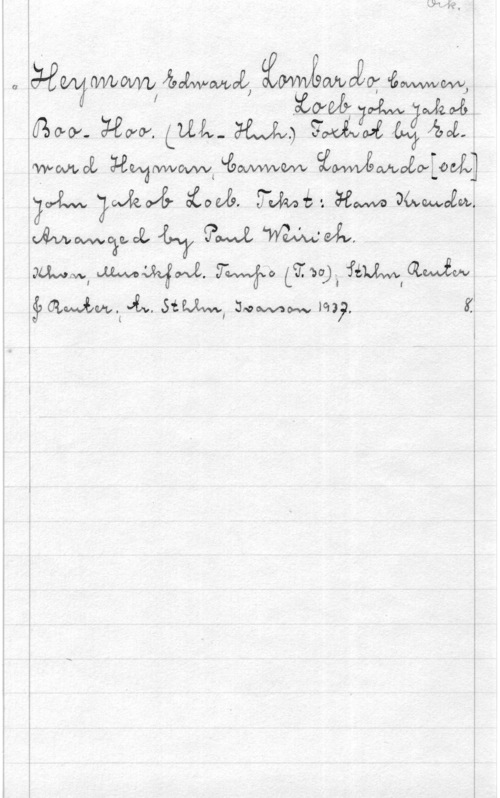 Ork.
Heyman, Edward, Lombardo, Carmen,
Loeb John Jakob
Boo-Hoo. (Uh-Huh.) Foxtrot by Ed-
ward Heyman, Carmen Lombardo [och]
John Jakob Loeb. Tekst: Hans Kreuder.
Arranged by Paul Weirich.
Khvn, Musikforl. Tempo (T. 30); Sthlm, Reuter
& Reuter; tr. Sthlm, Ivarson 1937. 8.